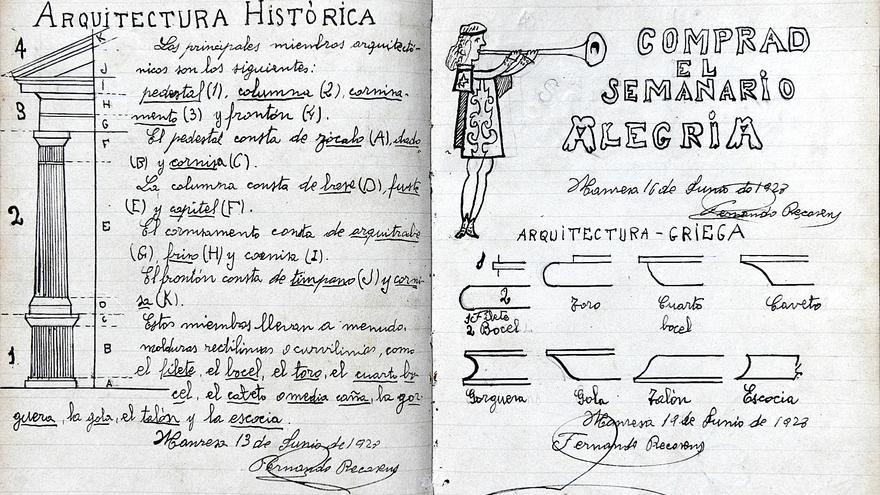 ARQUITECTURA HISTÒRICA
Los principales miembros arquitectó-
nicos son los siguientes:
pedestal (1), columna (2), cornisa-
mento (3) y frontón (4).
El pedestal consta de zócalo (A), dado
(B) y cornisa (C).
La columna consta de base (D), fuste
(E) y capitel (F).
El cornisamento consta de arquitrabe
(G), friso (H) y cornisa (I).
El frontón consta de tímpano (J) y corni-
sa (K).
Estos miembros llevan a menudo,
molduras rectilineas o curvilineas, como
el filete, el bocel, el toro, el cuarto bo-
cel, el caveto o media caña, la gor-
guera, la gola, el talón y la escocia.
Manresa 13 de Junio de 1923
Fernando Recasens
4
3
2
1
K
J
I
H
G
F
E
D
C
B
A
COMPRAD
EL
SEMANARIO
ALEGRIA
Manresa 16 de Junio de 1923
Fernando Recasens
ARQUITECTURA-GRIEGA
1
2
1 Filete
2 Bocel
Toro
Cuarto
bocel
Caveto
Gorguera
Gola
Talón
Escocia
Manresa 19 de Junio de 1923
Fernando Recasens